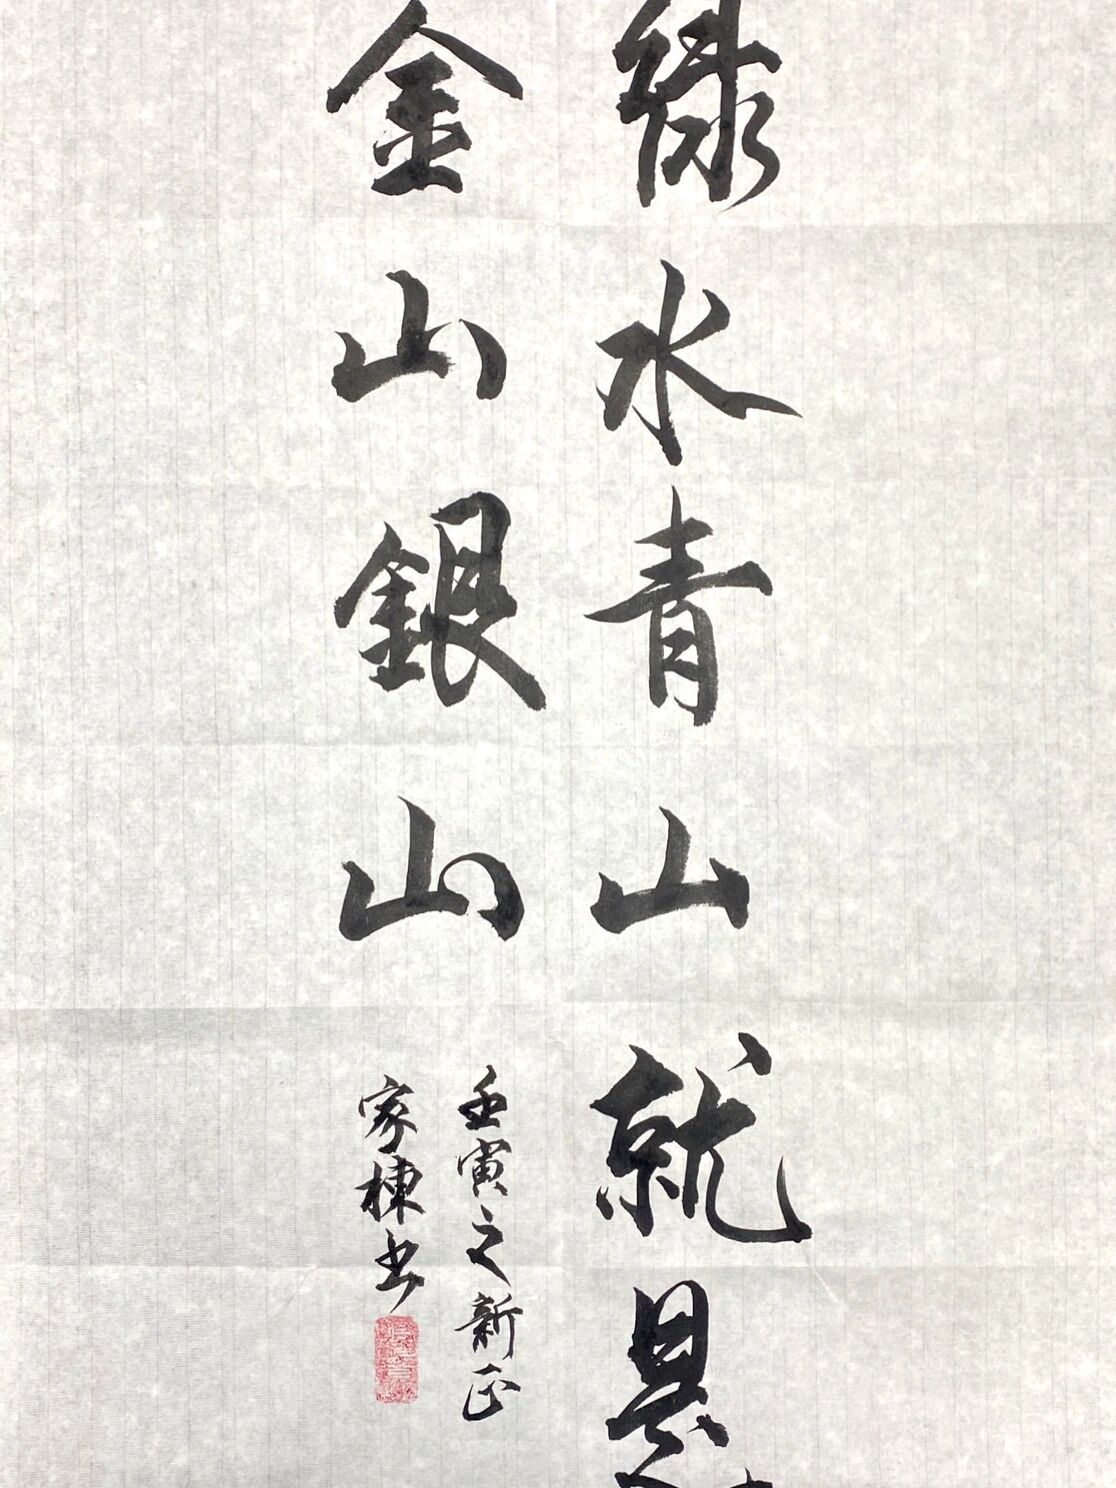 綠水青山就是
金山銀山
壬寅之新正
家棟书